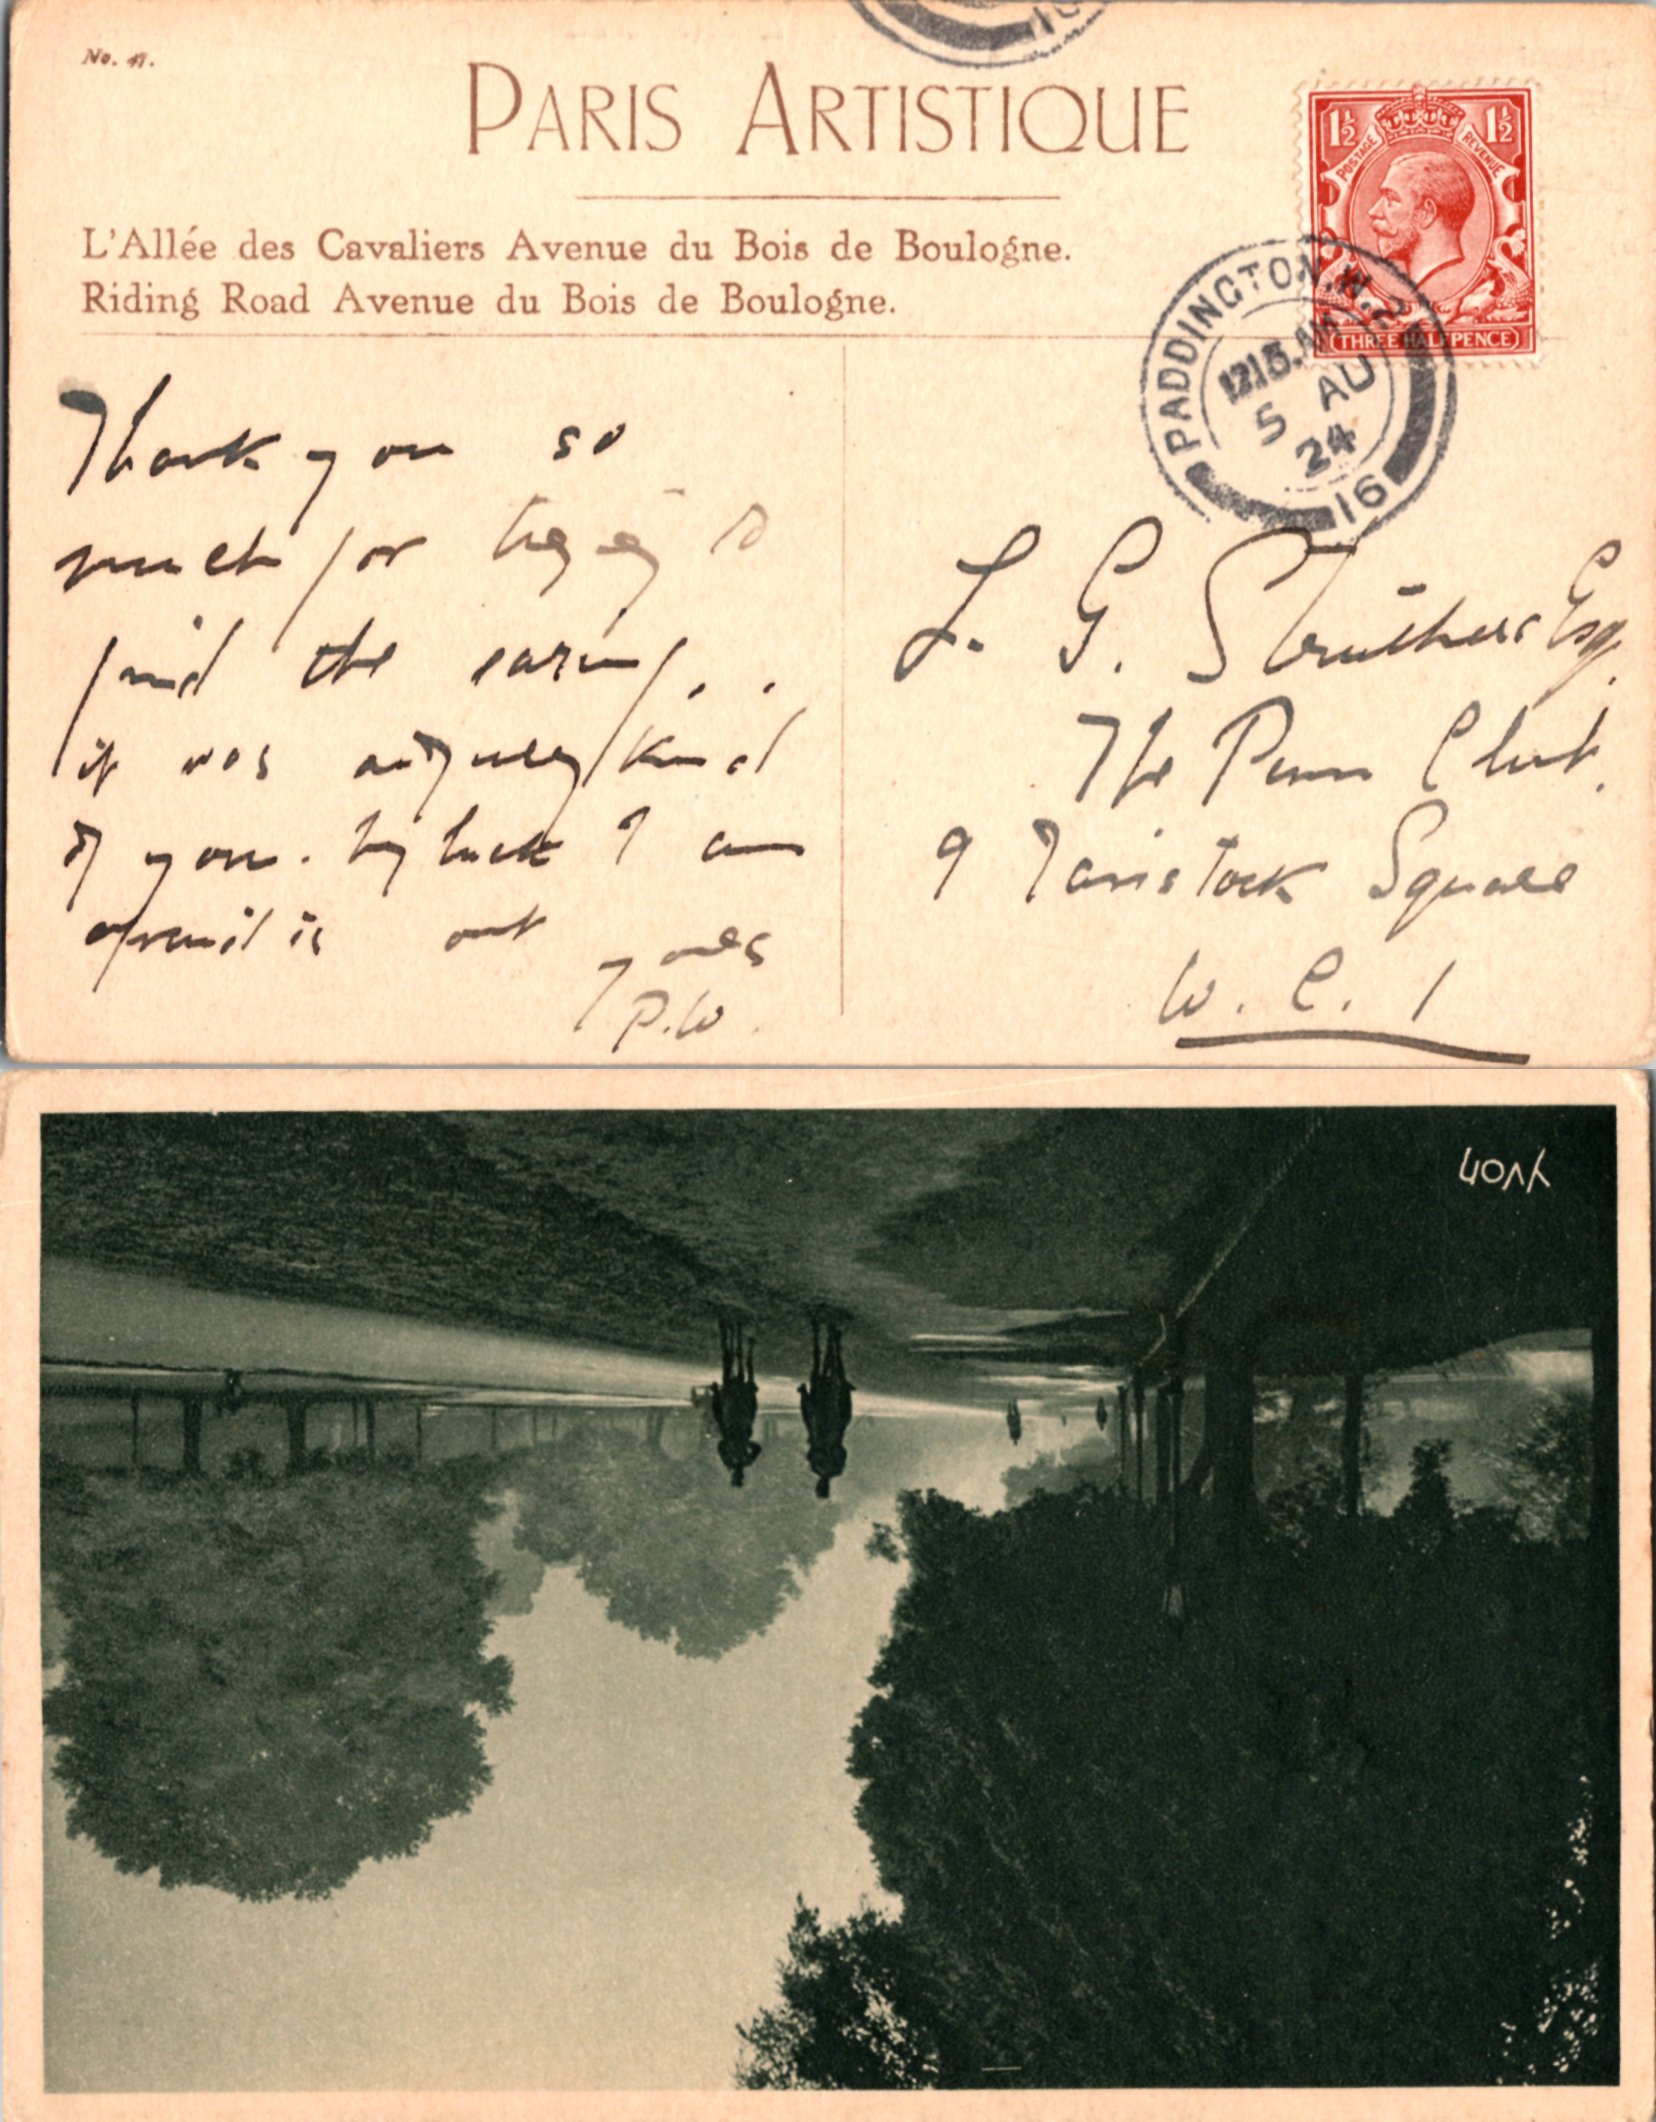 No. 47.
PARIS ARTISTIQUE
L'Allée des Cavaliers Avenue du Bois de Boulogne.
Riding Road Avenue du Bois de Boulogne.
1½ 1½
POSTAGE REVENUE
THREE HALFPENCE
PADDINGTON. W. 2
12.15 AM
5 AU
24
16
16
Thank you so
much for trying to
find the earring..
it was awfully kind
of you. by luck I am
out yours
P.W.
L. G. Struthers Esq.
The Penn Club.
9 Tavistock Square
W. C. 1
Yvon